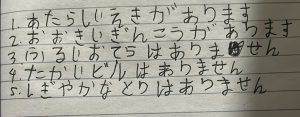 1. あたらしいえきがあります
2. おおきいぎんこうがあります
3. ふるいおてらはありません
4. たかいビルはありません
5. にぎやかなとりはありません